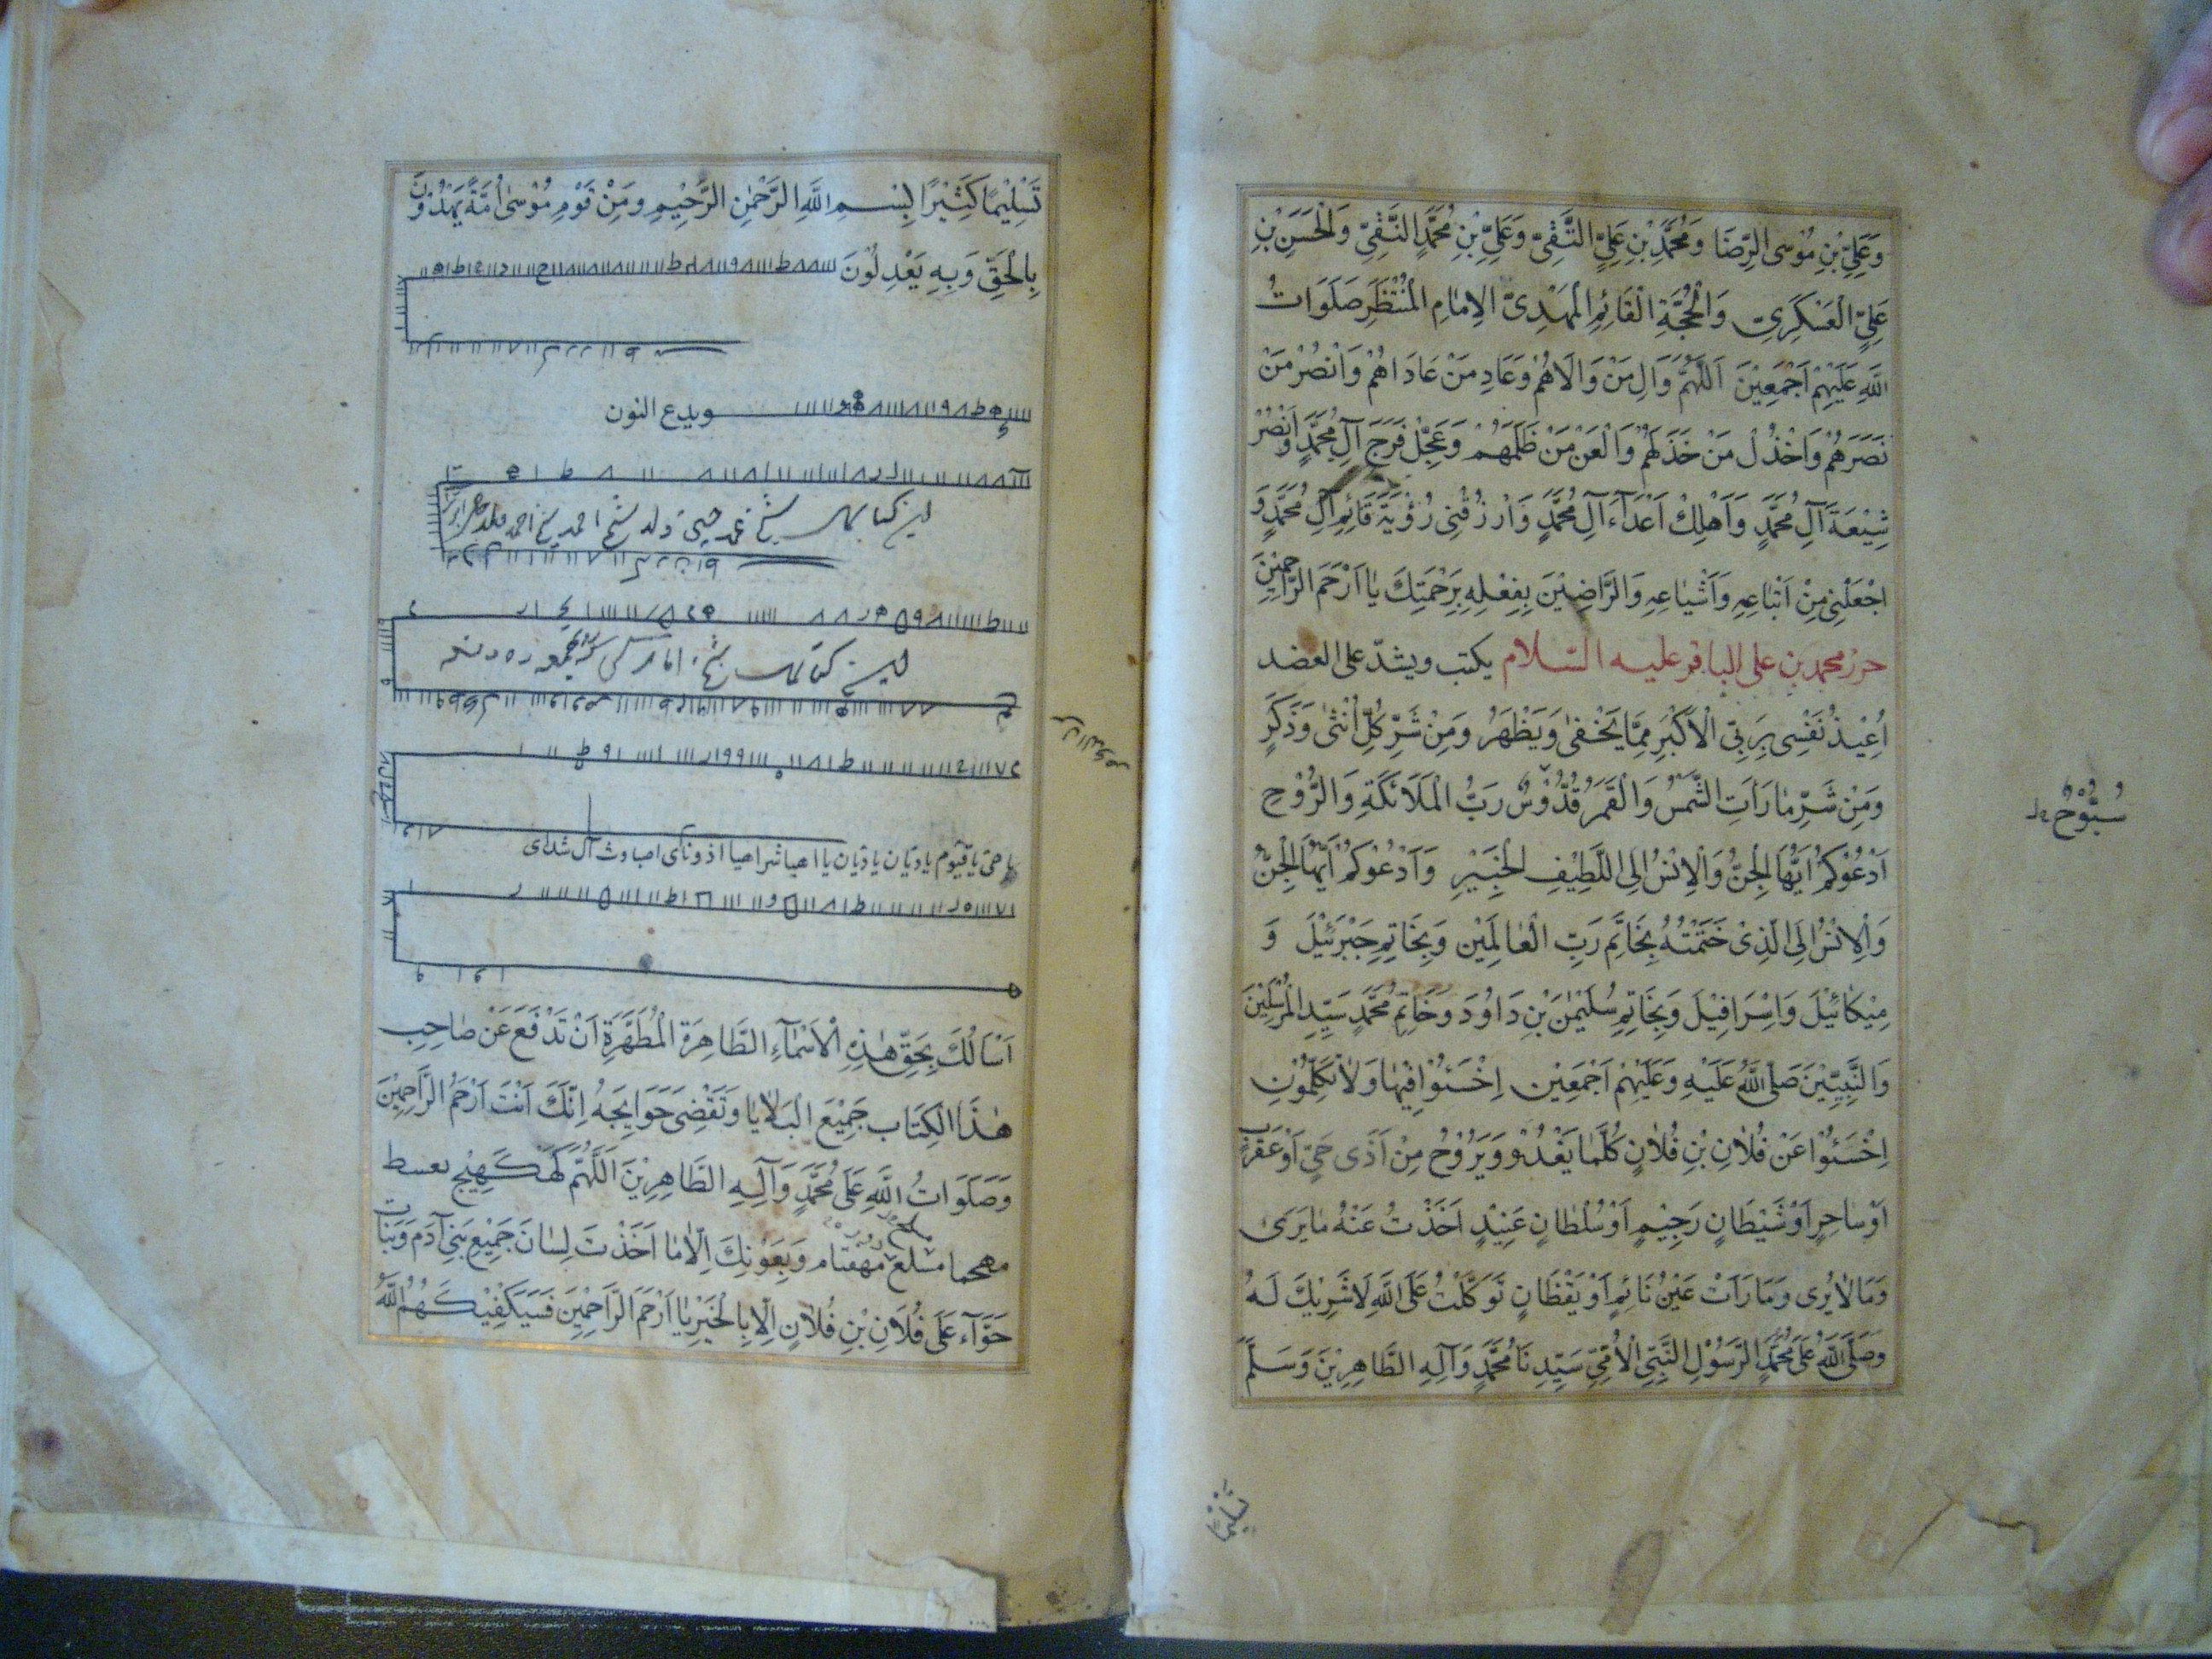 وَعَلِيِّ بْنِ مُوْسَى الرِّضَا وَمُحَمَّدِ بْنِ عَلِيٍّ التَّقِيِّ وَعَلِيِّ بْنِ مُحَمَّدٍ النَّقِيِّ وَالْحَسَنِ بْنِ
عَلِيٍّ الْعَسْكَرِيِّ وَالْحُجَّةِ الْقَائِمِ الْمَهْدِيِّ الْاِمَامِ الْمُنْتَظَرِ صَلَوَاتُ
اللَّهِ عَلَيْهِمْ اَجْمَعِيْنَ اَللَّهُمَّ وَالِ مَنْ وَالَاهُمْ وَعَادِ مَنْ عَادَاهُمْ وَانْصُرْ مَنْ
نَصَرَهُمْ وَاخْذُلْ مَنْ خَذَلَهُمْ وَالْعَنْ مَنْ ظَلَمَهُمْ وَعَجِّلْ فَرَجَ آلِ مُحَمَّدٍ وَانْصُرْ
شِيْعَةَ آلِ مُحَمَّدٍ وَاَهْلِكْ اَعْدَآءَ آلِ مُحَمَّدٍ وَارْزُقْنِي رُؤْيَةَ قَائِمِ آلِ مُحَمَّدٍ وَ
اجْعَلْنِي مِنْ اَتْبَاعِهِ وَاَشْيَاعِهِ وَالرَّاضِيْنَ بِفِعْلِهِ بِرَحْمَتِكَ يَا اَرْحَمَ الرَّاحِمِيْنَ
حرز محمد بن علي الباقر عليه السلام يكتب ويشدّ على العضد
اُعِيْذُ نَفْسِي بِرَبِّيَ الْاَكْبَرِ مِمَّا يَخْفَى وَيَظْهَرُ وَمِنْ شَرِّ كُلِّ اُنْثَى وَذَكَرٍ
وَمِنْ شَرِّ مَا رَاَتِ الشَّمْسُ وَالْقَمَرُ قُدُّوْسٌ رَبُّ الْمَلَائِكَةِ وَالرُّوْحِ
سُبُّوْحٌ
اَدْعُوْكُمْ اَيُّهَا الْجِنُّ وَالْاِنْسُ اِلَى اللَّطِيْفِ الْخَبِيْرِ وَاَدْعُوْكُمْ اَيُّهَا الْجِنُّ
وَالْاِنْسُ اِلَى الَّذِيْ خَتَمْتُهُ بِخَاتَمِ رَبِّ الْعَالَمِيْنَ وَبِخَاتَمِ جَبْرَئِيْلَ وَ
مِيْكَائِيْلَ وَاِسْرَافِيْلَ وَبِخَاتَمِ سُلَيْمٰنَ بْنِ دَاوُدَ وَخَاتَمِ مُحَمَّدٍ سَيِّدِ الْمُرْسَلِيْنَ
وَالنَّبِيِّيْنَ صَلَّى اللَّهُ عَلَيْهِ وَعَلَيْهِمْ اَجْمَعِيْنَ اِخْسَئُوْا فِيْهَا وَلَا تُكَلِّمُوْنِ
اِخْسَئُوْا عَنْ فُلَانِ بْنِ فُلَانٍ كُلَّمَا يَغْدُوْ وَيَرُوْحُ مِنْ اَذَى حَيٍّ اَوْ عَقْرَبٍ
اَوْ سَاحِرٍ اَوْ شَيْطَانٍ رَجِيْمٍ اَوْ سُلْطَانٍ عَنِيْدٍ اَخَذْتُ عَنْهُ مَا يَرَى
وَمَا لَا يُرَى وَمَا رَاَتْ عَيْنُ نَائِمٍ اَوْ يَقْظَانٍ تَوَكَّلْتُ عَلَى اللَّهِ لَا شَرِيْكَ لَهُ
وَصَلَّى اللَّهُ عَلَى مُحَمَّدٍ الرَّسُوْلِ النَّبِيِّ الْاُمِّيِّ سَيِّدِنَا مُحَمَّدٍ وَآلِهِ الطَّاهِرِيْنَ وَسَلَّمَ
تَسْلِيْمًا
تَسْلِيْمًا كَثِيْرًا بِسْمِ اللَّهِ الرَّحْمٰنِ الرَّحِيْمِ وَمِنْ قَوْمِ مُوْسٰى اُمَّةٌ يَهْدُوْنَ
بِالْحَقِّ وَبِهِ يَعْدِلُوْنَ
ويدع النون
يا حيّ يا قيّوم يا ديّان يا ديّان يا اهيا شراهيا اذوناي اصباوث آل شداي
اَسْاَلُكَ بِحَقِّ هٰذِهِ الْاَسْمَآءِ الطَّاهِرَةِ الْمُطَهَّرَةِ اَنْ تَدْفَعَ عَنْ صَاحِبِ
هٰذَا الْكِتَابِ جَمِيْعَ الْبَلَايَا وَتَقْضِيَ حَوَايِجَهُ اِنَّكَ اَنْتَ اَرْحَمُ الرَّاحِمِيْنَ
وَصَلَوَاتُ اللَّهِ عَلَى مُحَمَّدٍ وَآلِهِ الطَّاهِرِيْنَ اَللَّهُمَّ كَهكَهِيْجٍ بعسط
مهحما مسلع مهفتام وَبِعَوْنِكَ اِلَّا مَا اَخَذْتَ لِسَانَ جَمِيْعِ بَنِيْ آدَمَ وَبَنَاتِ
حَوَّآءَ عَلَى فُلَانِ بْنِ فُلَانٍ اِلَّا بِالْخَيْرِ يَا اَرْحَمَ الرَّاحِمِيْنَ فَسَيَكْفِيْكَهُمُ اللَّهُ